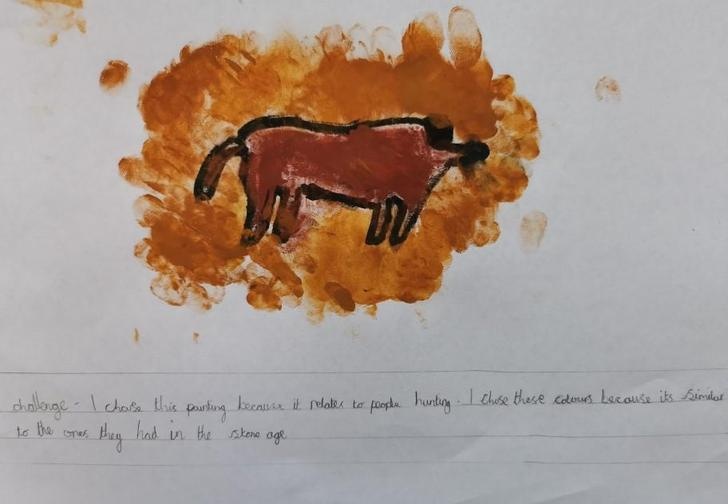 challenge - I chose this painting because it relates to people hunting. I chose these colours because its similar
to the ones they had in the stone age